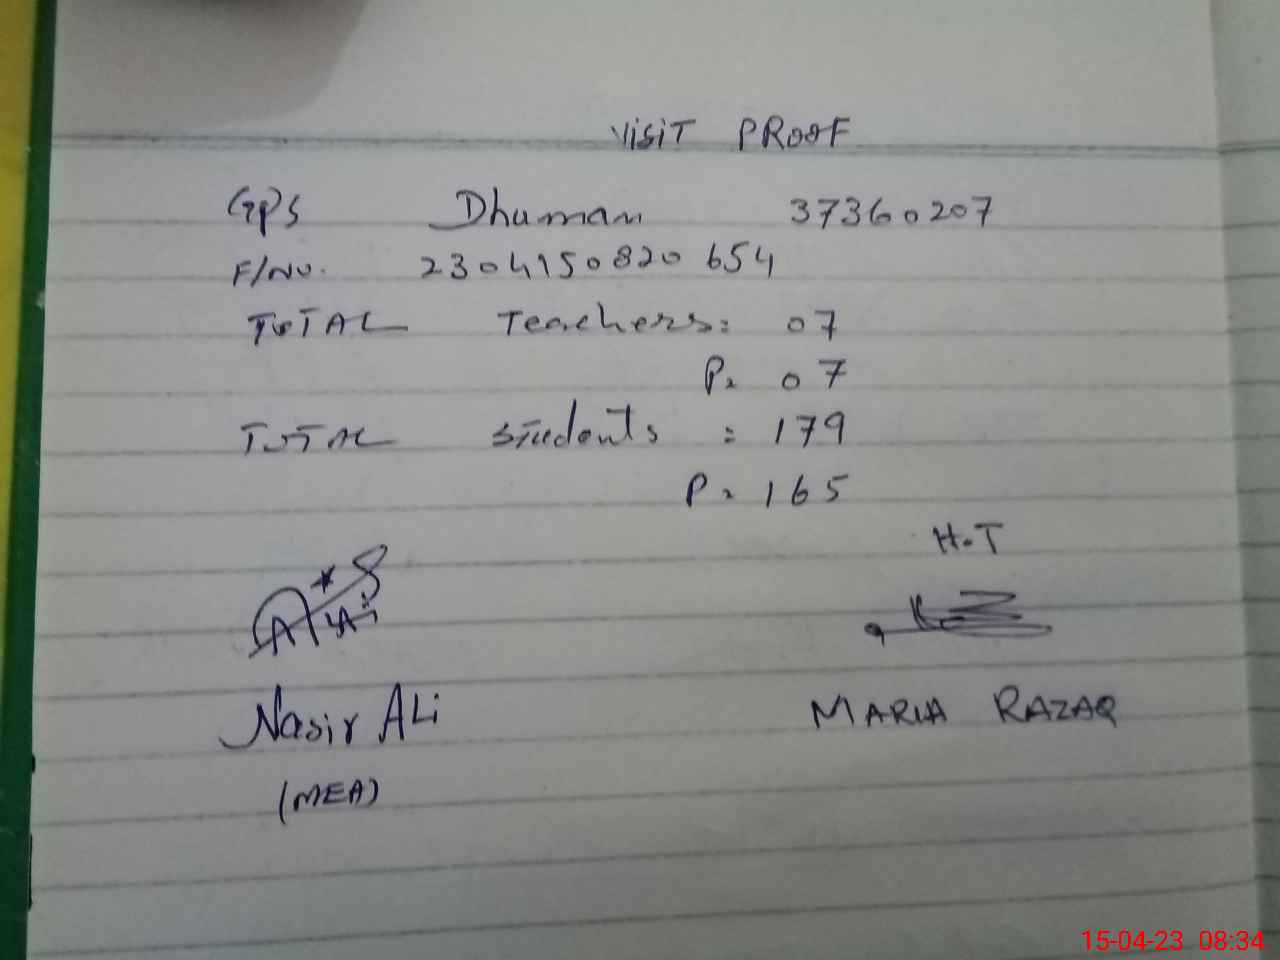 VISIT PROOF
GPS Dhuman 37360207
F/No. 2304150820654
TOTAL Teachers: 07
P= 07
TOTAL students = 179
P= 165
H.T
Nasir ALi
MARIA RAZAQ
(MEA)
15-04-23 08:34